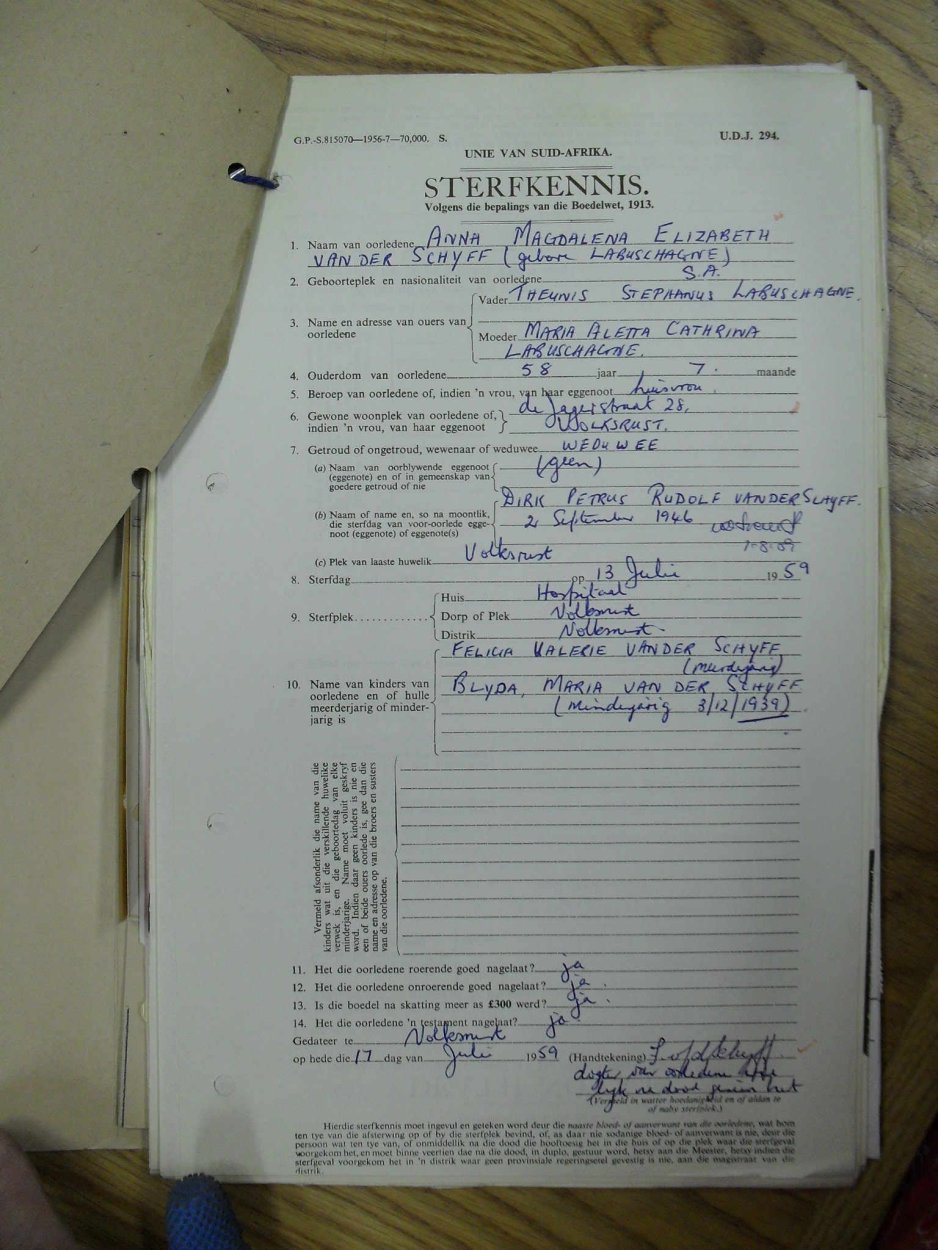 G.P.-S.815070—1956-7—70,000. S.
U.D.J. 294.
UNIE VAN SUID-AFRIKA.
STERFKENNIS.
Volgens die bepalings van die Boedelwet, 1913.
1. Naam van oorledene ANNA MAGDALENA ELIZABETH
VAN DER SCHYFF (gebore LABUSCHAGNE)
2. Geboorteplek en nasionaliteit van oorledene S.A.
3. Name en adresse van ouers van oorledene
Vader THEUNIS STEPHANUS LABUSCHAGNE.
Moeder MARIA ALETTA CATHRINA
LABUSCHAGNE.
4. Ouderdom van oorledene 58 jaar 7. maande
5. Beroep van oorledene of, indien 'n vrou, van haar eggenoot huisvrou.
6. Gewone woonplek van oorledene of, de Jagerstraat 28,
indien 'n vrou, van haar eggenoot VOLKSRUST.
7. Getroud of ongetroud, wewenaar of weduwee WEDUWEE
(a) Naam van oorblywende eggenoot (geen)
(eggenote) en of in gemeenskap van
goedere getroud of nie
DIRK PETRUS RUDOLF VAN DER SCHYFF.
(b) Naam of name en, so na moontlik,
die sterfdag van voor-oorlede egge- 2 September 1946
noot (eggenote) of eggenote(s)
(c) Plek van laaste huwelik Volksrust
8. Sterfdag op 13 Julie 1959
9. Sterfplek
Huis Hospitaal
Dorp of Plek Volksrust
Distrik Volksrust.
10. Name van kinders van
oorledene en of hulle
meerderjarig of minder-
jarig is
FELICIA VALERIE VAN DER SCHYFF
(meerderjarig)
BLYDA, MARIA VAN DER SCHYFF
(Minderjarig 3/12/1939)
Vermeld afsonderlik die name van die
kinders wat uit die verskillende huwelike
verwek is, en die geboortedag van elke
minderjarige. Name moet voluit geskryf
word. Indien daar geen kinders is nie en
een of beide ouers oorlede is, gee dan die
name en adresse op van die broers en susters
van die oorledene.
11. Het die oorledene roerende goed nagelaat? ja
12. Het die oorledene onroerende goed nagelaat? ja.
13. Is die boedel na skatting meer as £300 werd? ja.
14. Het die oorledene 'n testament nagelaat? ja.
Gedateer te Volksrust
op hede die 17 dag van Julie 1959 (Handtekening)
dogter van oorledene
lyk na dood gesien het
(Vermeld in watter hoedanigheid en of aldan te
of naby sterfplek.)
Hierdie sterfkennis moet ingevul en geteken word deur die naaste bloed- of aanverwant van die oorledene, wat hom
ten tye van die afsterwing op of by die sterfplek bevind, of, as daar nie sodanige bloed- of aanverwant is nie, deur die
persoon wat ten tye van, of onmiddellik na die dood die hooftoesig het in die huis of op die plek waar die sterfgeval
voorgekom het, en moet binne veertien dae na die dood, in duplo, gestuur word, hetsy aan die Meester, hetsy indien die
sterfgeval voorgekom het in 'n distrik waar geen provinsiale regeringsetel gevestig is nie, aan die magistraat van die
distrik.